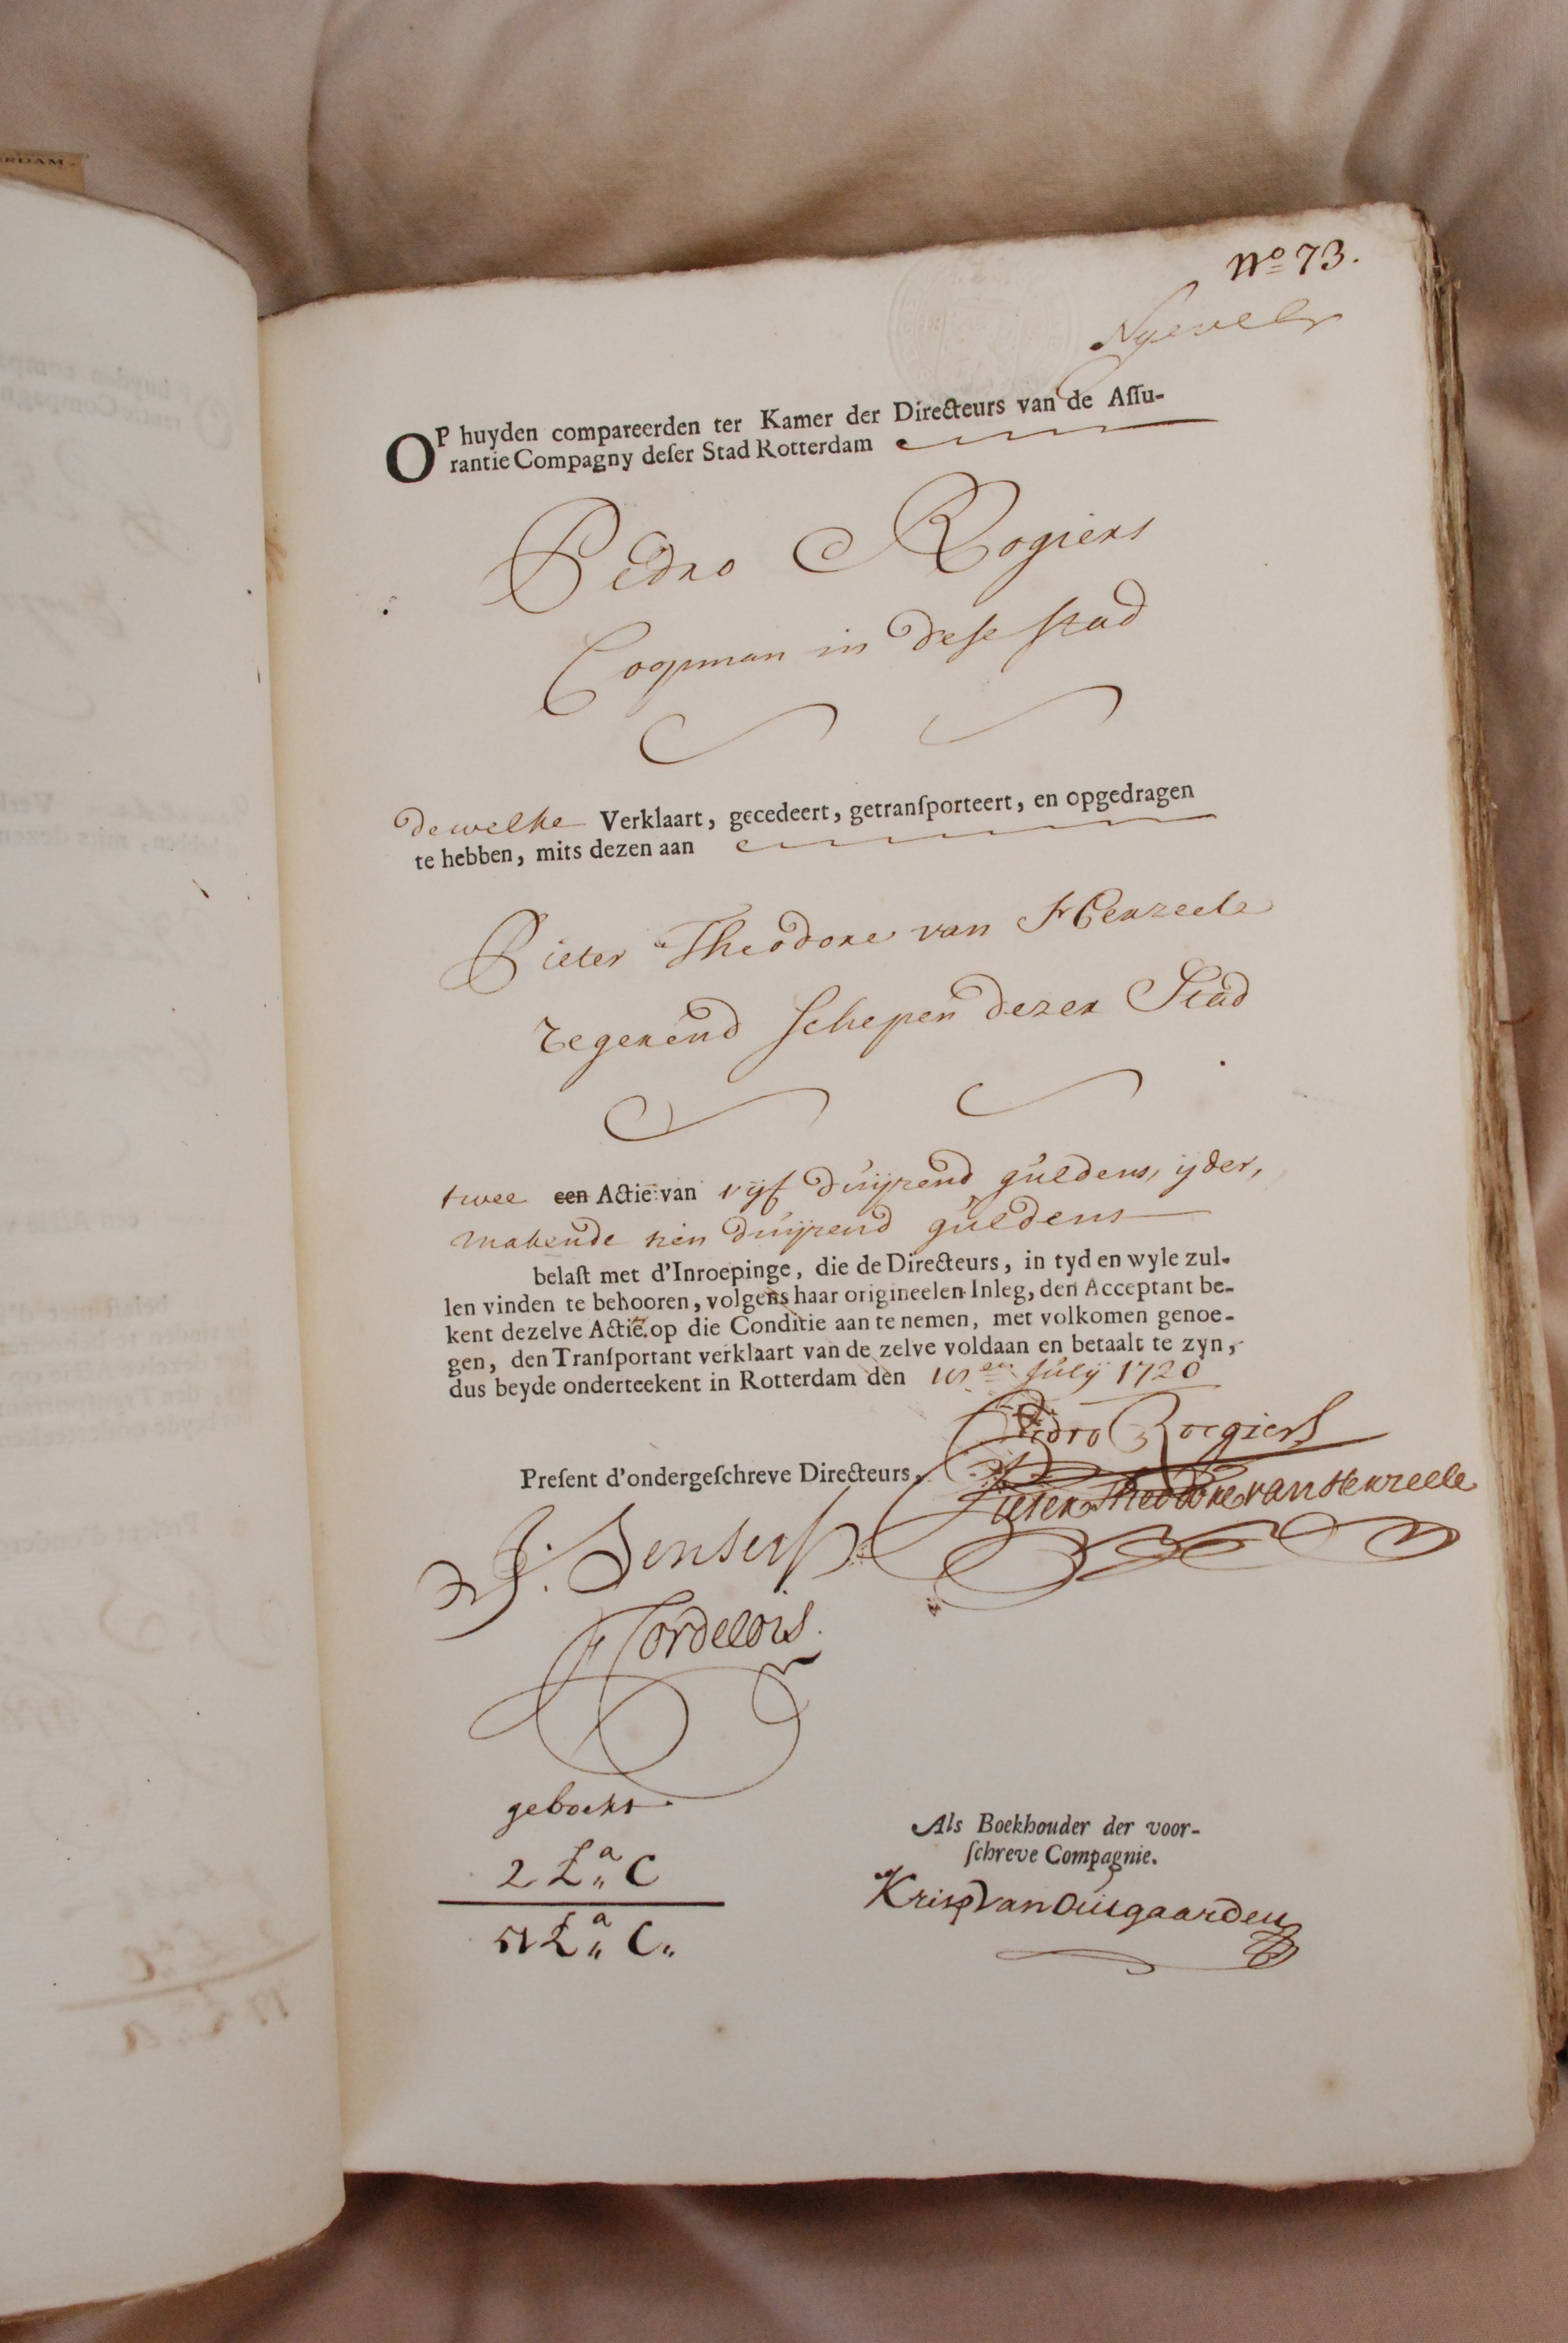 RDAM
No 73.
OP huyden compareerden ter Kamer der Directeurs van de Aſſu-
rantie Compagny deſer Stad Rotterdam
Pedro Rogiers
Coopman in deſe ſtad
dewelke Verklaart, gecedeert, getranſporteert, en opgedragen
te hebben, mits dezen aan
Pieter Theodore van Henzeele
regerend ſchepen dezer Stad
twee een Actie van vijf duijzend guldens, ijder,
makende tien duijzend guldens
belaſt met d'Inroepinge, die de Directeurs, in tyd en wyle zul-
len vinden te behooren, volgens haar origineelen Inleg, den Acceptant be-
kent dezelve Actie op die Conditie aan te nemen, met volkomen genoe-
gen, den Tranſportant verklaart van de zelve voldaan en betaalt te zyn,
dus beyde onderteekent in Rotterdam den July 1720
Pedro Roegiers
Preſent d'ondergeſchreve Directeurs,
Pieter Theodore van Henzeele
Cordelois.
geboekt
2 La C
La C
Als Boekhouder der voor-
ſchreve Compagnie.